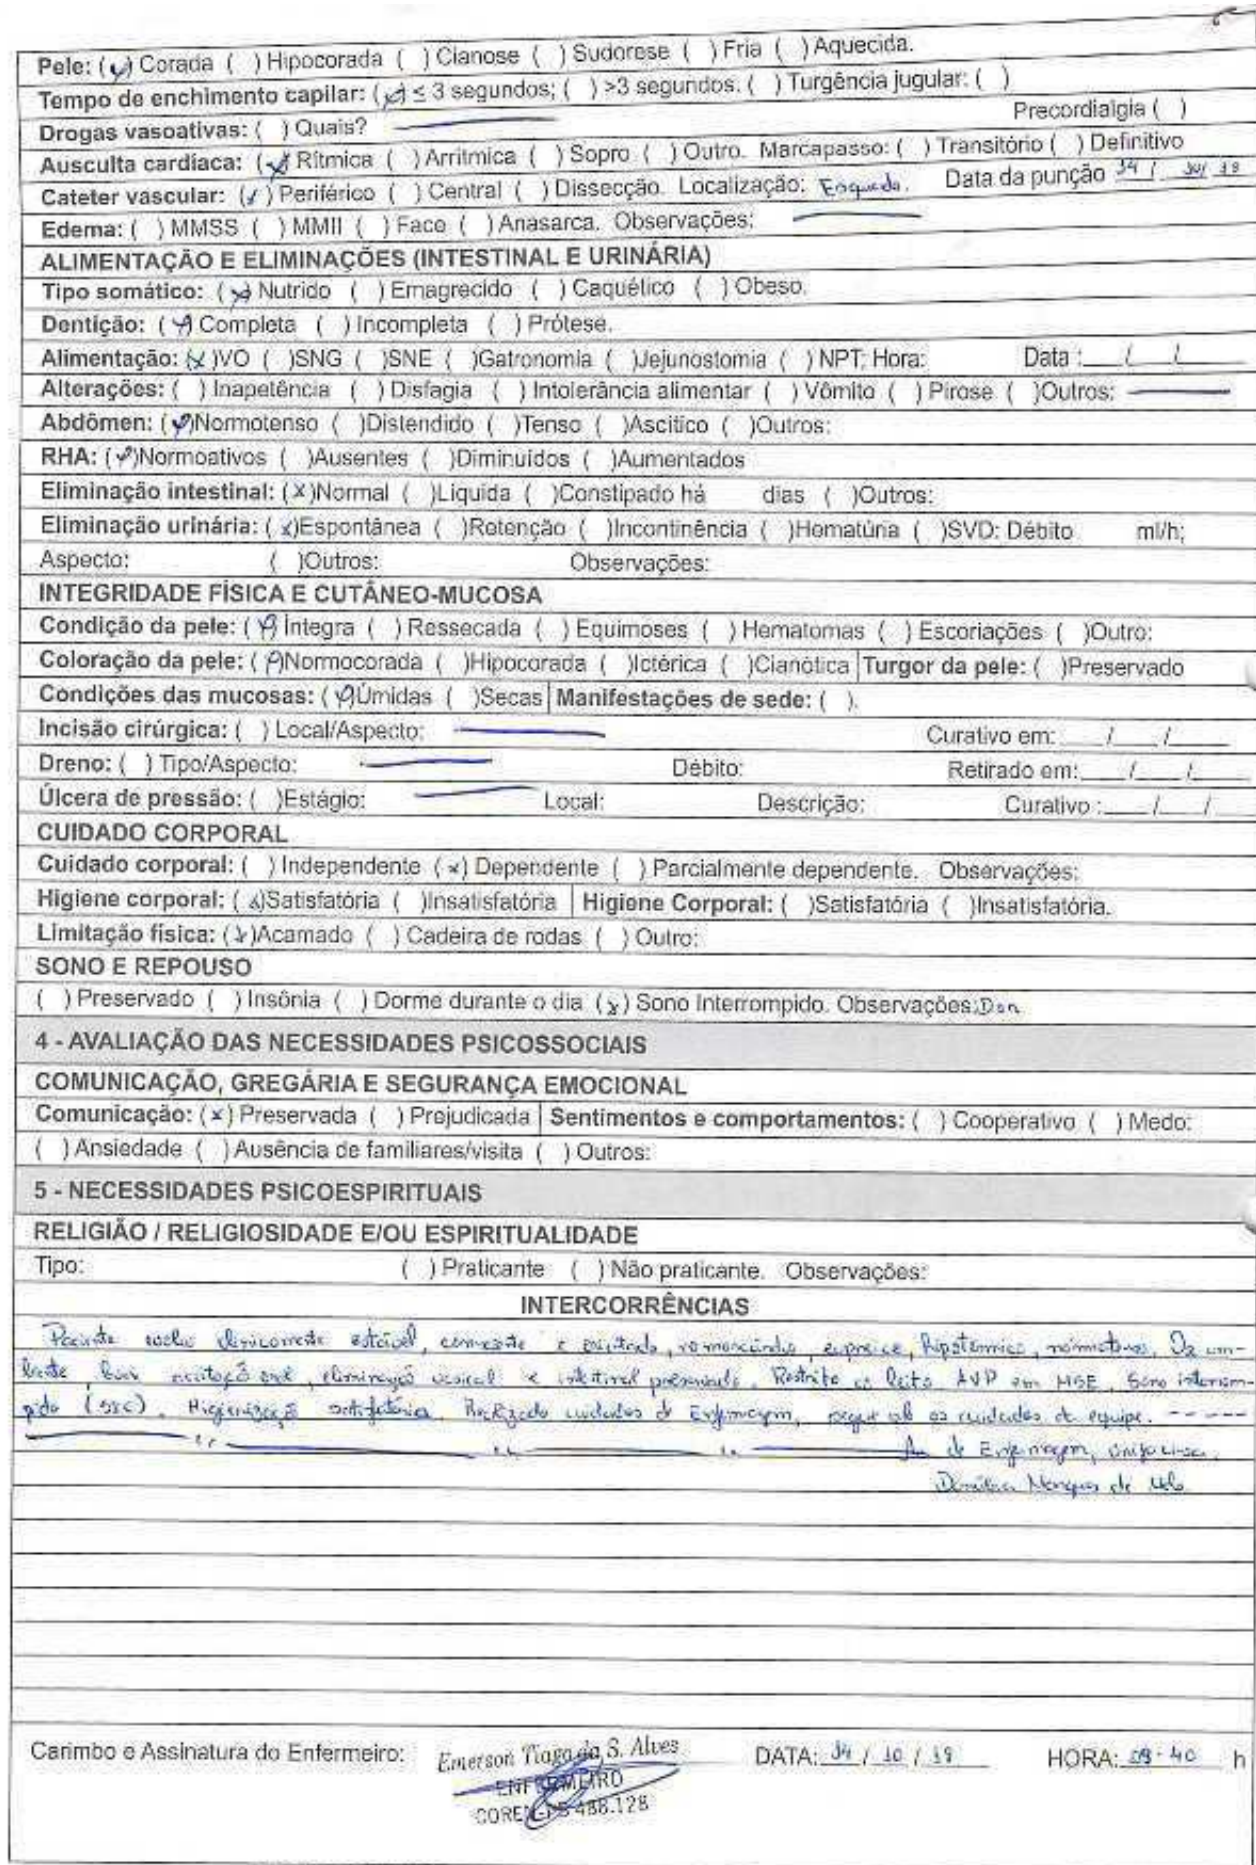 Pele: (x) Corada ( ) Hipocorada ( ) Cianose ( ) Sudorese ( ) Fria ( ) Aquecida.
Tempo de enchimento capilar: (x) ≤ 3 segundos; ( ) >3 segundos. ( ) Turgência jugular: ( )
Drogas vasoativas: ( ) Quais? Precordialgia ( )
Ausculta cardíaca: (x) Rítmica ( ) Arrítmica ( ) Sopro ( ) Outro. Marcapasso: ( ) Transitório ( ) Definitivo
Cateter vascular: (x) Periférico ( ) Central ( ) Dissecção. Localização: Esquerdo. Data da punção
Edema: ( ) MMSS ( ) MMII ( ) Face ( ) Anasarca. Observações:
ALIMENTAÇÃO E ELIMINAÇÕES (INTESTINAL E URINÁRIA)
Tipo somático: (x) Nutrido ( ) Emagrecido ( ) Caquético ( ) Obeso.
Dentição: (x) Completa ( ) Incompleta ( ) Prótese.
Alimentação: (x)VO ( )SNG ( )SNE ( )Gatronomia ( )Jejunostomia ( ) NPT; Hora: Data :___/___/___
Alterações: ( ) Inapetência ( ) Disfagia ( ) Intolerância alimentar ( ) Vômito ( ) Pirose ( )Outros:
Abdômen: (x)Normotenso ( )Distendido ( )Tenso ( )Ascitico ( )Outros:
RHA: (x)Normoativos ( )Ausentes ( )Diminuídos ( )Aumentados
Eliminação intestinal: (x)Normal ( )Líquida ( )Constipado há dias ( )Outros:
Eliminação urinária: (x)Espontânea ( )Retenção ( )Incontinência ( )Hematúria ( )SVD: Débito ml/h;
Aspecto: ( )Outros: Observações:
INTEGRIDADE FÍSICA E CUTÂNEO-MUCOSA
Condição da pele: (x) Íntegra ( ) Ressecada ( ) Equimoses ( ) Hematomas ( ) Escoriações ( )Outro:
Coloração da pele: (x)Normocorada ( )Hipocorada ( )Ictérica ( )Cianótica Turgor da pele: ( )Preservado
Condições das mucosas: (x)Úmidas ( )Secas Manifestações de sede: ( ).
Incisão cirúrgica: ( ) Local/Aspecto: Curativo em: ___/___/___
Dreno: ( ) Tipo/Aspecto: Débito: Retirado em:___/___/___
Úlcera de pressão: ( )Estágio: Local: Descrição: Curativo :___/___/___
CUIDADO CORPORAL
Cuidado corporal: ( ) Independente (x) Dependente ( ) Parcialmente dependente. Observações:
Higiene corporal: (x)Satisfatória ( )Insatisfatória Higiene Corporal: ( )Satisfatória ( )Insatisfatória.
Limitação física: (x)Acamado ( ) Cadeira de rodas ( ) Outro:
SONO E REPOUSO
( ) Preservado ( ) Insônia ( ) Dorme durante o dia (x) Sono Interrompido. Observações:
4 - AVALIAÇÃO DAS NECESSIDADES PSICOSSOCIAIS
COMUNICAÇÃO, GREGÁRIA E SEGURANÇA EMOCIONAL
Comunicação: (x) Preservada ( ) Prejudicada Sentimentos e comportamentos: ( ) Cooperativo ( ) Medo:
( ) Ansiedade ( ) Ausência de familiares/visita ( ) Outros:
5 - NECESSIDADES PSICOESPIRITUAIS
RELIGIÃO / RELIGIOSIDADE E/OU ESPIRITUALIDADE
Tipo: ( ) Praticante ( ) Não praticante. Observações:
INTERCORRÊNCIAS
Paciente evolui clinicamente estável, consciente e orientado, eupneico, hipotérmico, normotenso, O2 am-
biente, boa aceitação oral, eliminação vesical e intestinal preservada. Restrito ao leito AVP em MSE, Sono interrom-
pido (SIC). Higienização satisfatória. Realizado cuidados de Enfermagem, segue sob os cuidados da equipe. -----
de Enfermagem,
de Melo
Carimbo e Assinatura do Enfermeiro: Emerson Tiago da S. Alves DATA: 14 / 10 / 19 HORA: 09:40 h
ENFERMEIRO
COREN-PB 488.128